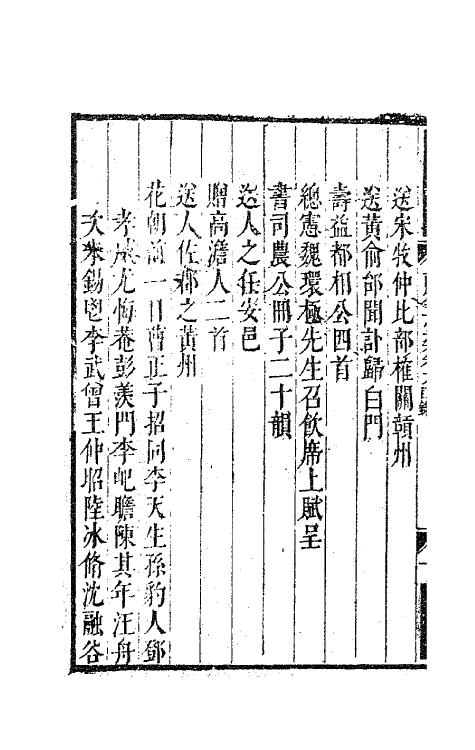 送宋牧仲比部榷關贛州
送黃俞邰聞訃歸白門
壽益都相公四首
總憲魏環極先生召飲席上賦呈
書司農公冊子二十韻
送人之任安邑
贈高澹人二首
送人佐郡之黃州
花朝前一日曹正子招同李天生孫豹人鄧
孝威尤悔菴彭羨門李屺瞻陳其年汪舟
次朱錫鬯李武曾王仲昭陸冰脩沈融谷